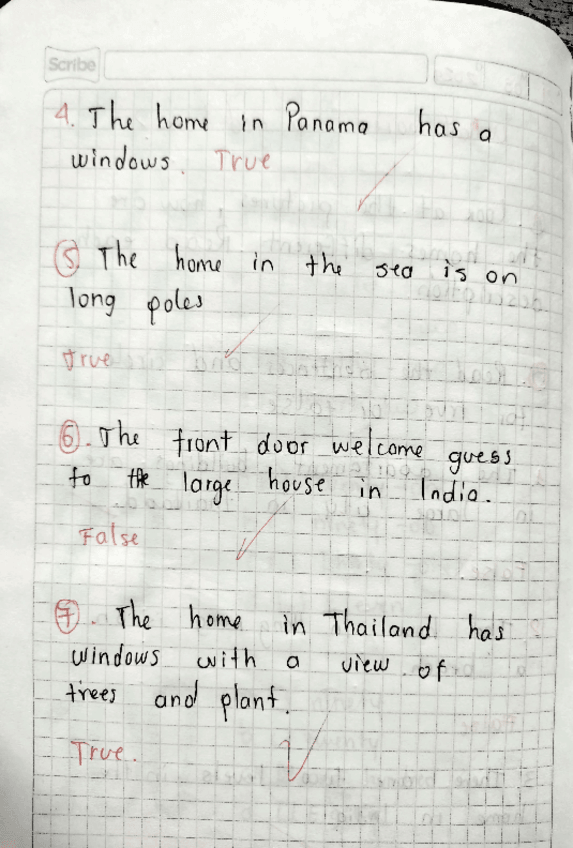 Scribe
4. The home in Panama has a
windows. True
5. The home in the sea is on
long poles
True
6. The front door welcome guess
to the large house in India.
False
7. The home in Thailand has
windows with a view of
trees and plant.
True.